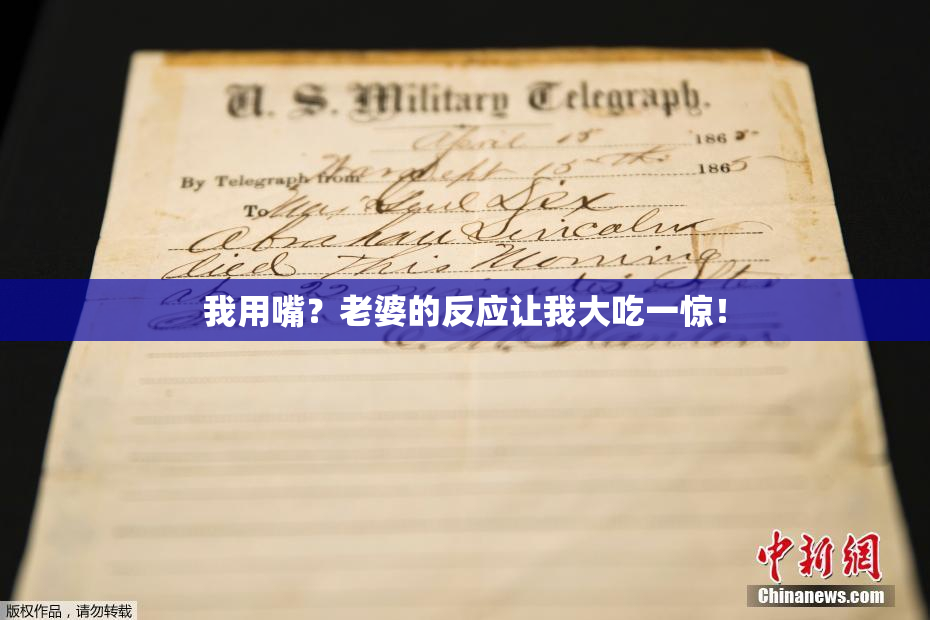 U. S. Military Telegraph.
April 15 1865
By Telegraph from War Dept 15th 1865
To Maj Genl Dix
Abraham Lincoln
died This Morning
at 22 minutes after
我用嘴？老婆的反应让我大吃一惊！
中新網
Chinanews.com
版权作品，请勿转载